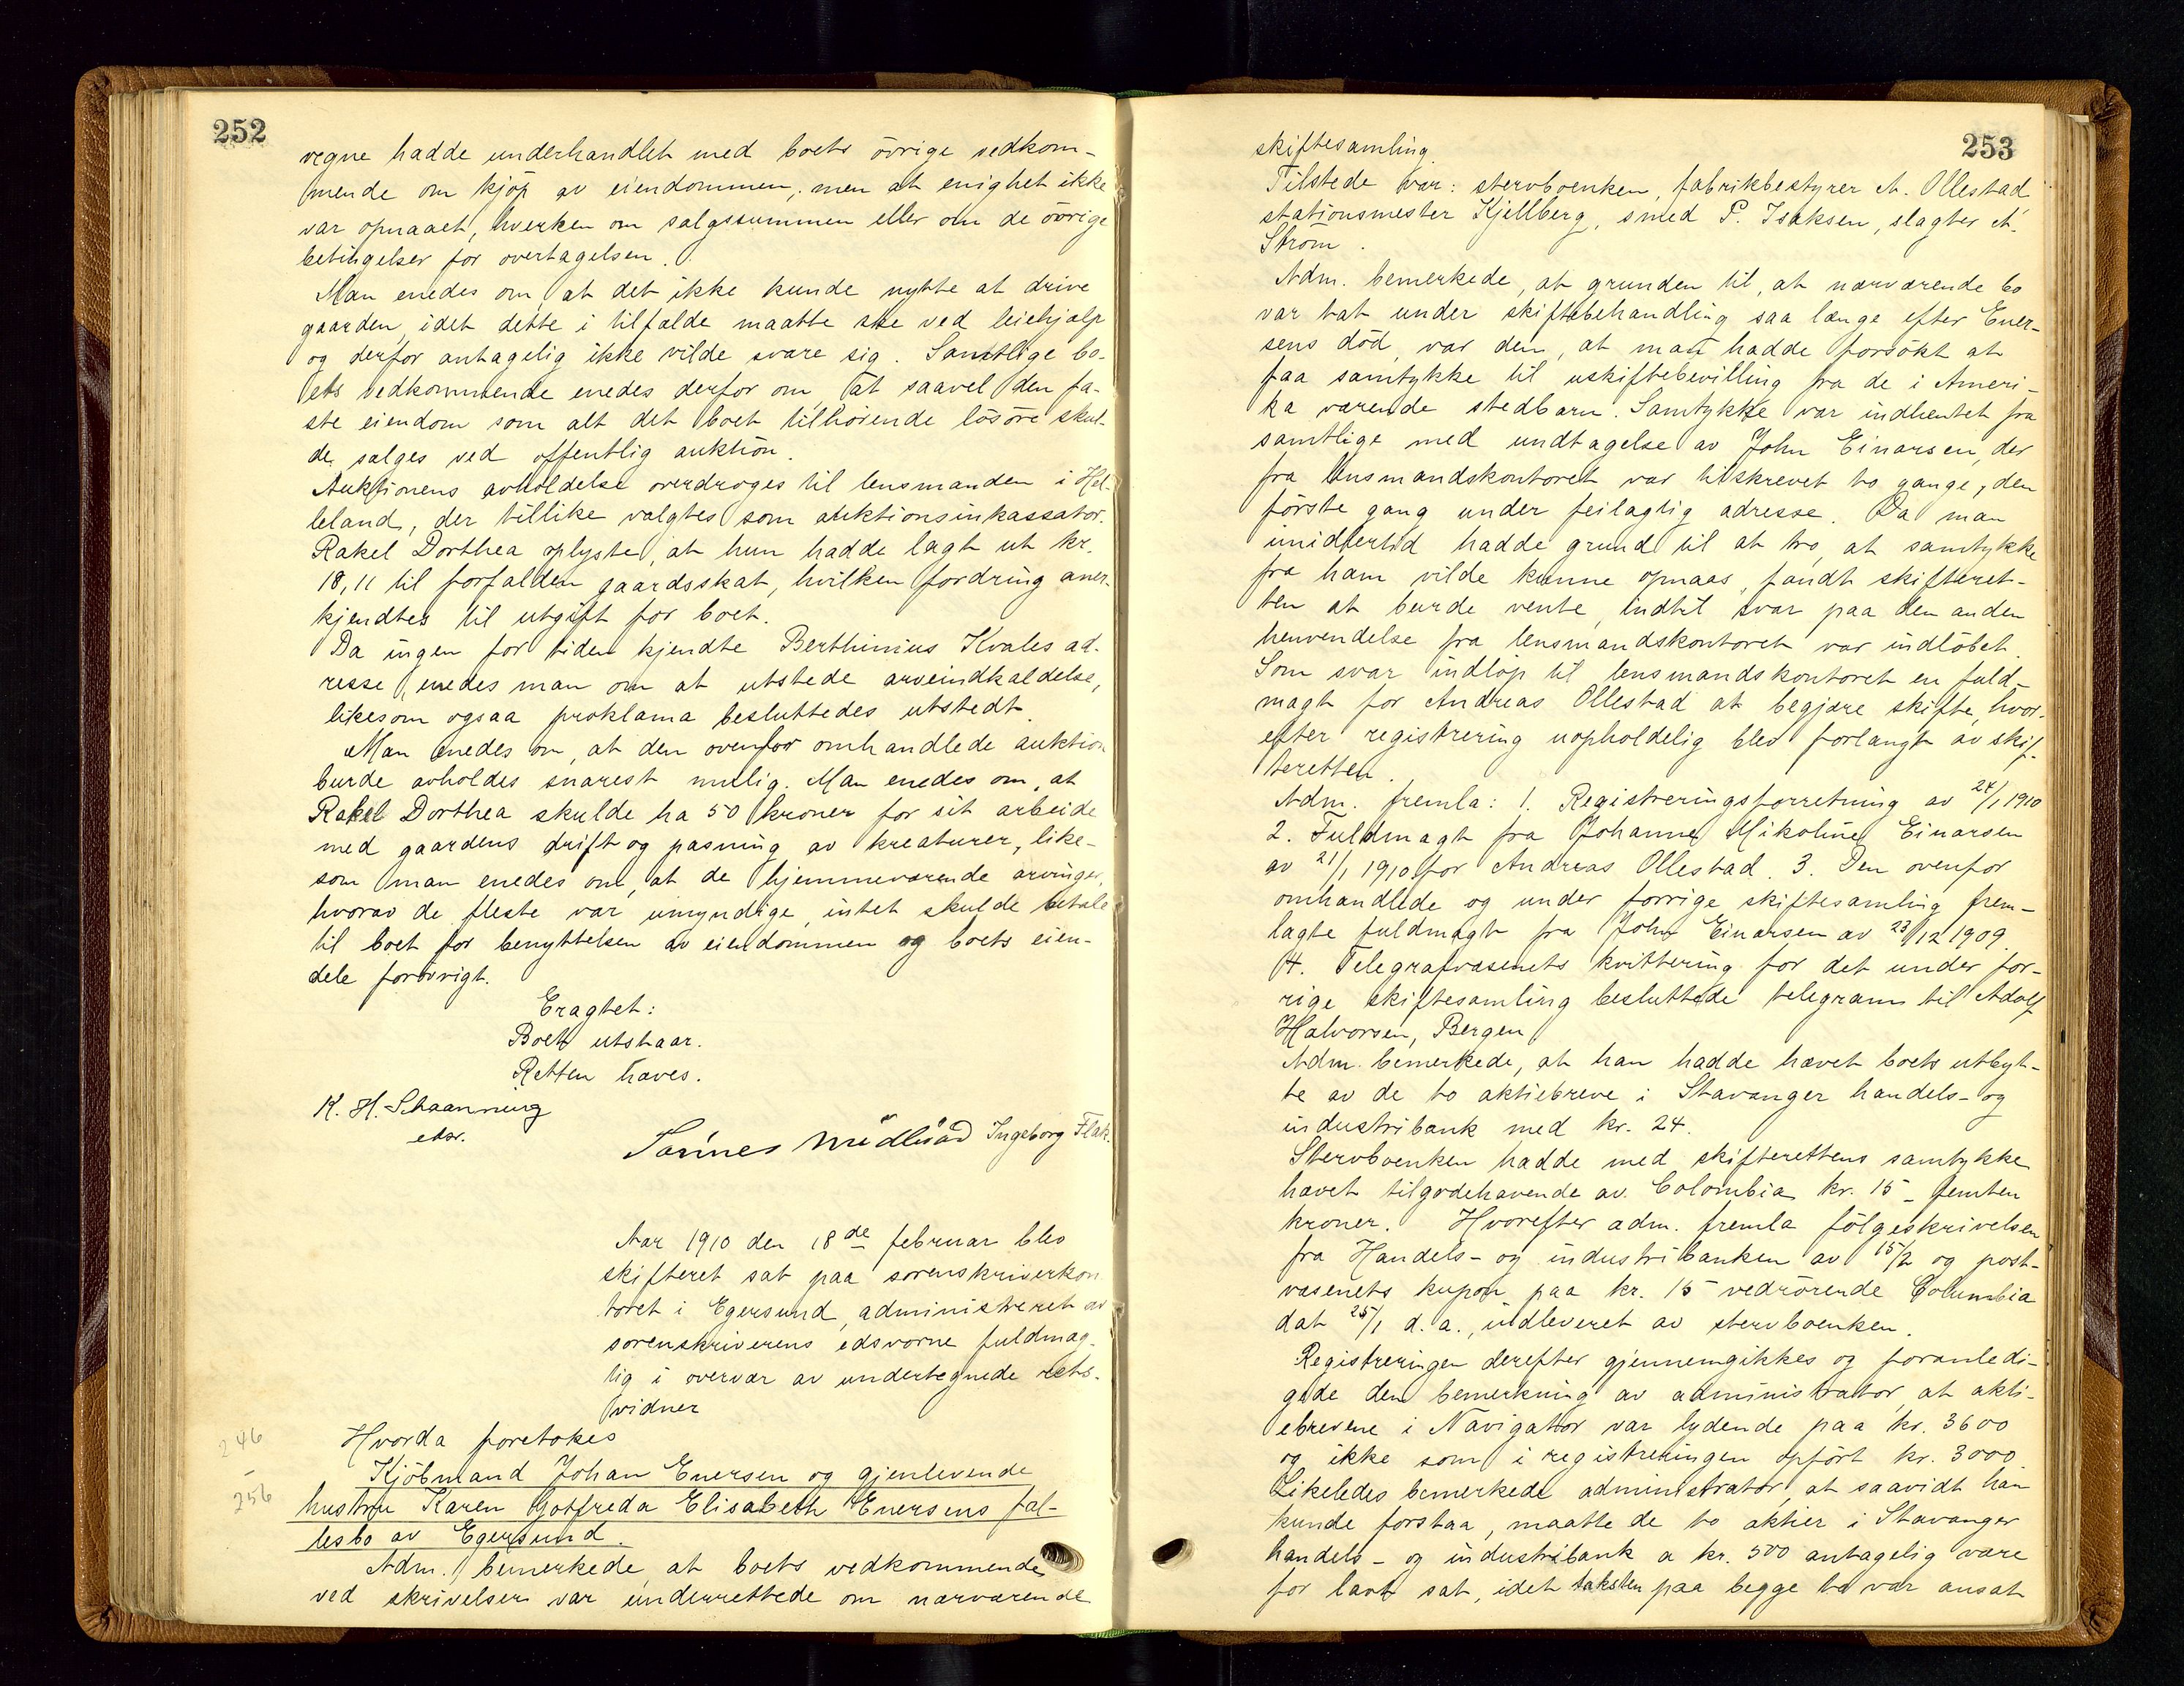 252
vegne hadde underhandlet med boets övrige vedkom-
mende om kjöp av eiendommen, men at enighet ikke
var opnaaet, hverken om salgssummen eller om de övrige
betingelser for overtagelsen.
Man enedes om, at det ikke kunde nytte at drive
gaarden, idet dette i tilfælde maatte ske ved leiehjælp
og derfor antagelig ikke vilde svare sig. Samtlige bo-
ets vedkommende enedes derfor om, at saavel den fa-
ste eiendom som alt det boet tilhörende lösöre skul-
de sælges ved offentlig auktion.
Auktionens avholdelse overdroges til lensmanden i Hel-
leland, der tillike valgtes som auktionsinkassator.
Rakel Dorthea oplyste, at hun hadde lagt ut kr.
18,11 til forfalden gaardsskat, hvilken fordring aner-
kjendtes til utgift for boet.
Da ingen for tiden kjendte Berthinius Kvales ad-
resse, enedes man om at utstede arveindkaldelse,
likesom ogsaa proklama besluttedes utstedt.
Man enedes om, at den ovenfor omhandlede auktion
burde avholdes snarest mulig. Man enedes om, at
Rakel Dorthea skulde ha 50 kroner for sit arbeide
med gaardens drift og pasning av kreaturer, like-
som man enedes om, at de hjemmeværende arvinger,
hvorav de fleste var umyndige, intet skulde betale
til boet for benyttelsen av eiendommen og boets eien-
dele forövrigt.
Eragtet:
Boet utstaar.
Retten hæves.
K. H. Schaanning
edsv.
Sörines Midbröd Ingeborg Flak.
Aar 1910 den 18de februar blev
skifteret sat paa sorenskriverkon
toret i Egersund, administreret av
sorenskriverens edsvorne fuldmæg-
tig i overvær av undertegnede rets-
vidner
Hvorda foretokes
246
-
256
Kjöbmand Johan Enersen og gjenlevende
hustru Karen Gotfreda Elisabeth Enersens fæl-
lesbo av Egersund.
Adm. bemerkede, at boets vedkommende
ved skrivelser var underrettede om nærværende
253
skiftesamling.
Tilstede var: stervboenken, fabrikbestyrer A. Ollestad,
stationsmester Kjellberg, smed P. Isaksen, slagter A.
Ström.
Adm. bemerkede, at grunden til, at nærværende bo
var tat under skiftebehandling saa længe efter Ener-
sens död, var den, at man hadde forsökt at
faa samtykke til uskiftebevilling fra de i Ameri-
ka værende stedbarn. Samtykke var indhentet fra
samtlige med undtagelse av John Einarsen, der
fra lensmandskontoret var tilskrevet to gange, den
förste gang under feilagtig adresse. Da man
imidlertid hadde grund til at tro, at samtykke
fra ham vilde kunne opnaas, fandt skifteret-
ten at burde vente, indtil svar paa den anden
henvendelse fra lensmandskontoret var indlöbet.
Som svar indlöp til lensmandskontoret en fuld-
magt for Andreas Ollestad at begjære skifte, hvor-
efter registrering uopholdelig blev forlangt av skif-
teretten.
Adm. fremla: 1. Registreringsforretning av 24/1 1910
2. Fuldmagt fra Johanne Nikoline Einarsen
av 21/1 1910 for Andreas Ollestad. 3. Den ovenfor
omhandlede og under forrige skiftesamling frem-
lagte fuldmagt fra John Einarsen av 23/12 1909.
4. Telegrafvæsenets kvittering for det under for-
rige skiftesamling besluttede telegram til Adolf
Halvorsen, Bergen
Adm. bemerkede, at han hadde hævet boets utbyt-
te av de to aktiebreve i Stavanger handels- og
industribank med kr. 24.
Stervboenken hadde med skifterettens samtykke
hævet tilgodehavende av Colombia kr. 15 - femten
kroner. Hvorefter adm. fremla fölgeskrivelsen
fra Handels- og industribanken av 15/2 og post-
væsenets kupon paa kr. 15 vedrörende Columbia
dat 25/1 d. a., indleveret av stervboenken.
Registreringen derefter gjennemgikkes og foranledi-
gede den bemerkning av administrator, at akti-
ebrevene i Navigator var lydende paa kr. 3600
og ikke som i registreringen opfört kr. 3000.
Likeledes bemerkede administrator, at saavidt han
kunde forstaa, maatte de to aktier i Stavanger
handels- og industribank a kr. 500 antagelig være
for lavt sat, idet taksten paa begge to var ansat